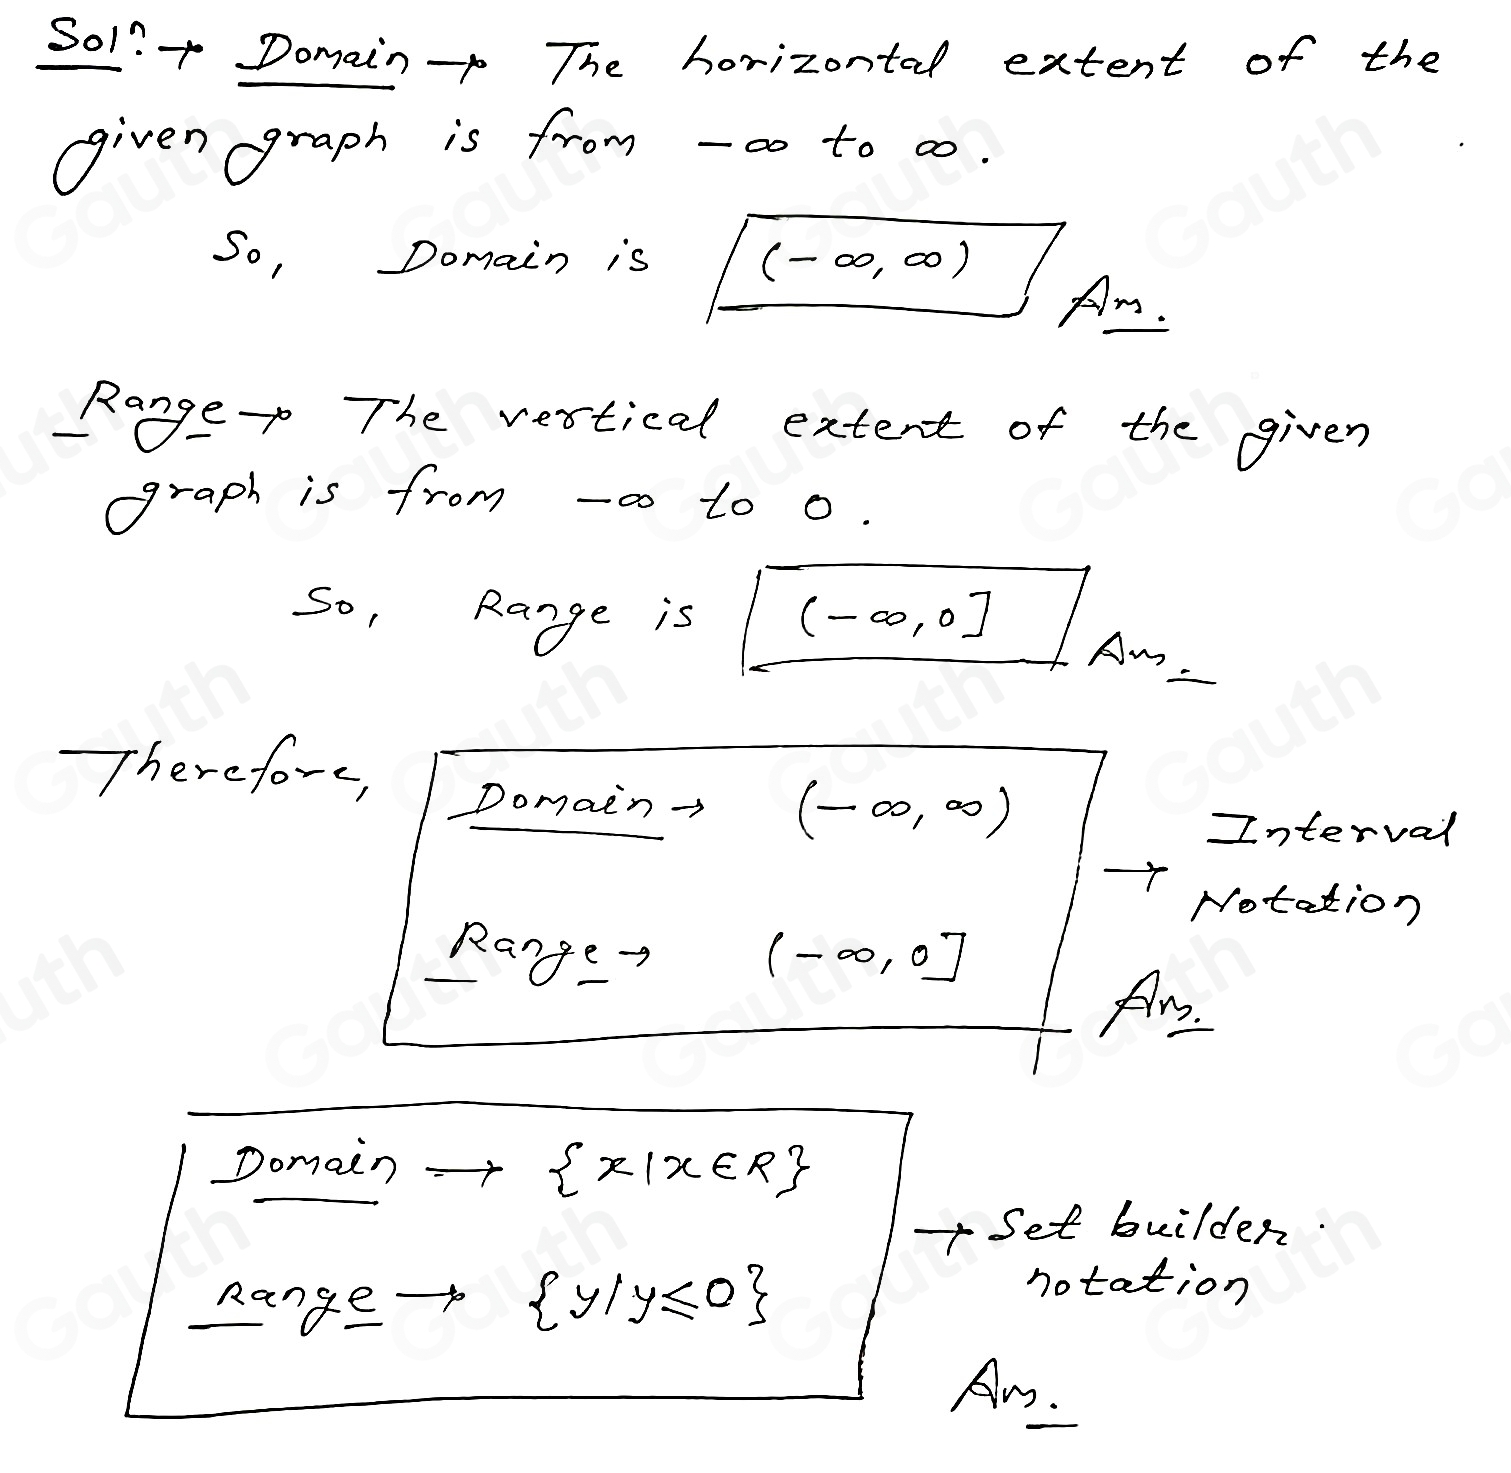 Solⁿ: → Domain → The horizontal extent of the
given graph is from -∞ to ∞.
So, Domain is (-∞, ∞) Ans.
Range → The vertical extent of the given
graph is from -∞ to 0.
So, Range is (-∞, 0] Ans.
Therefore, Domain → (-∞, ∞)
→ Interval
Notation
Range → (-∞, 0]
Ans.
Domain → {x|x∈R}
→ Set builder
notation
Range → {y|y≤0}
Ans.
Gauth